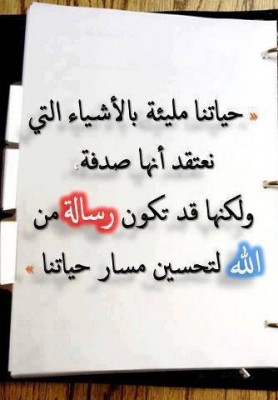 « حياتنا مليئة بالأشياء التي
نعتقد أنها صدفة.
ولكنها قد تكون رسالة من
الله لتحسين مسار حياتنا »